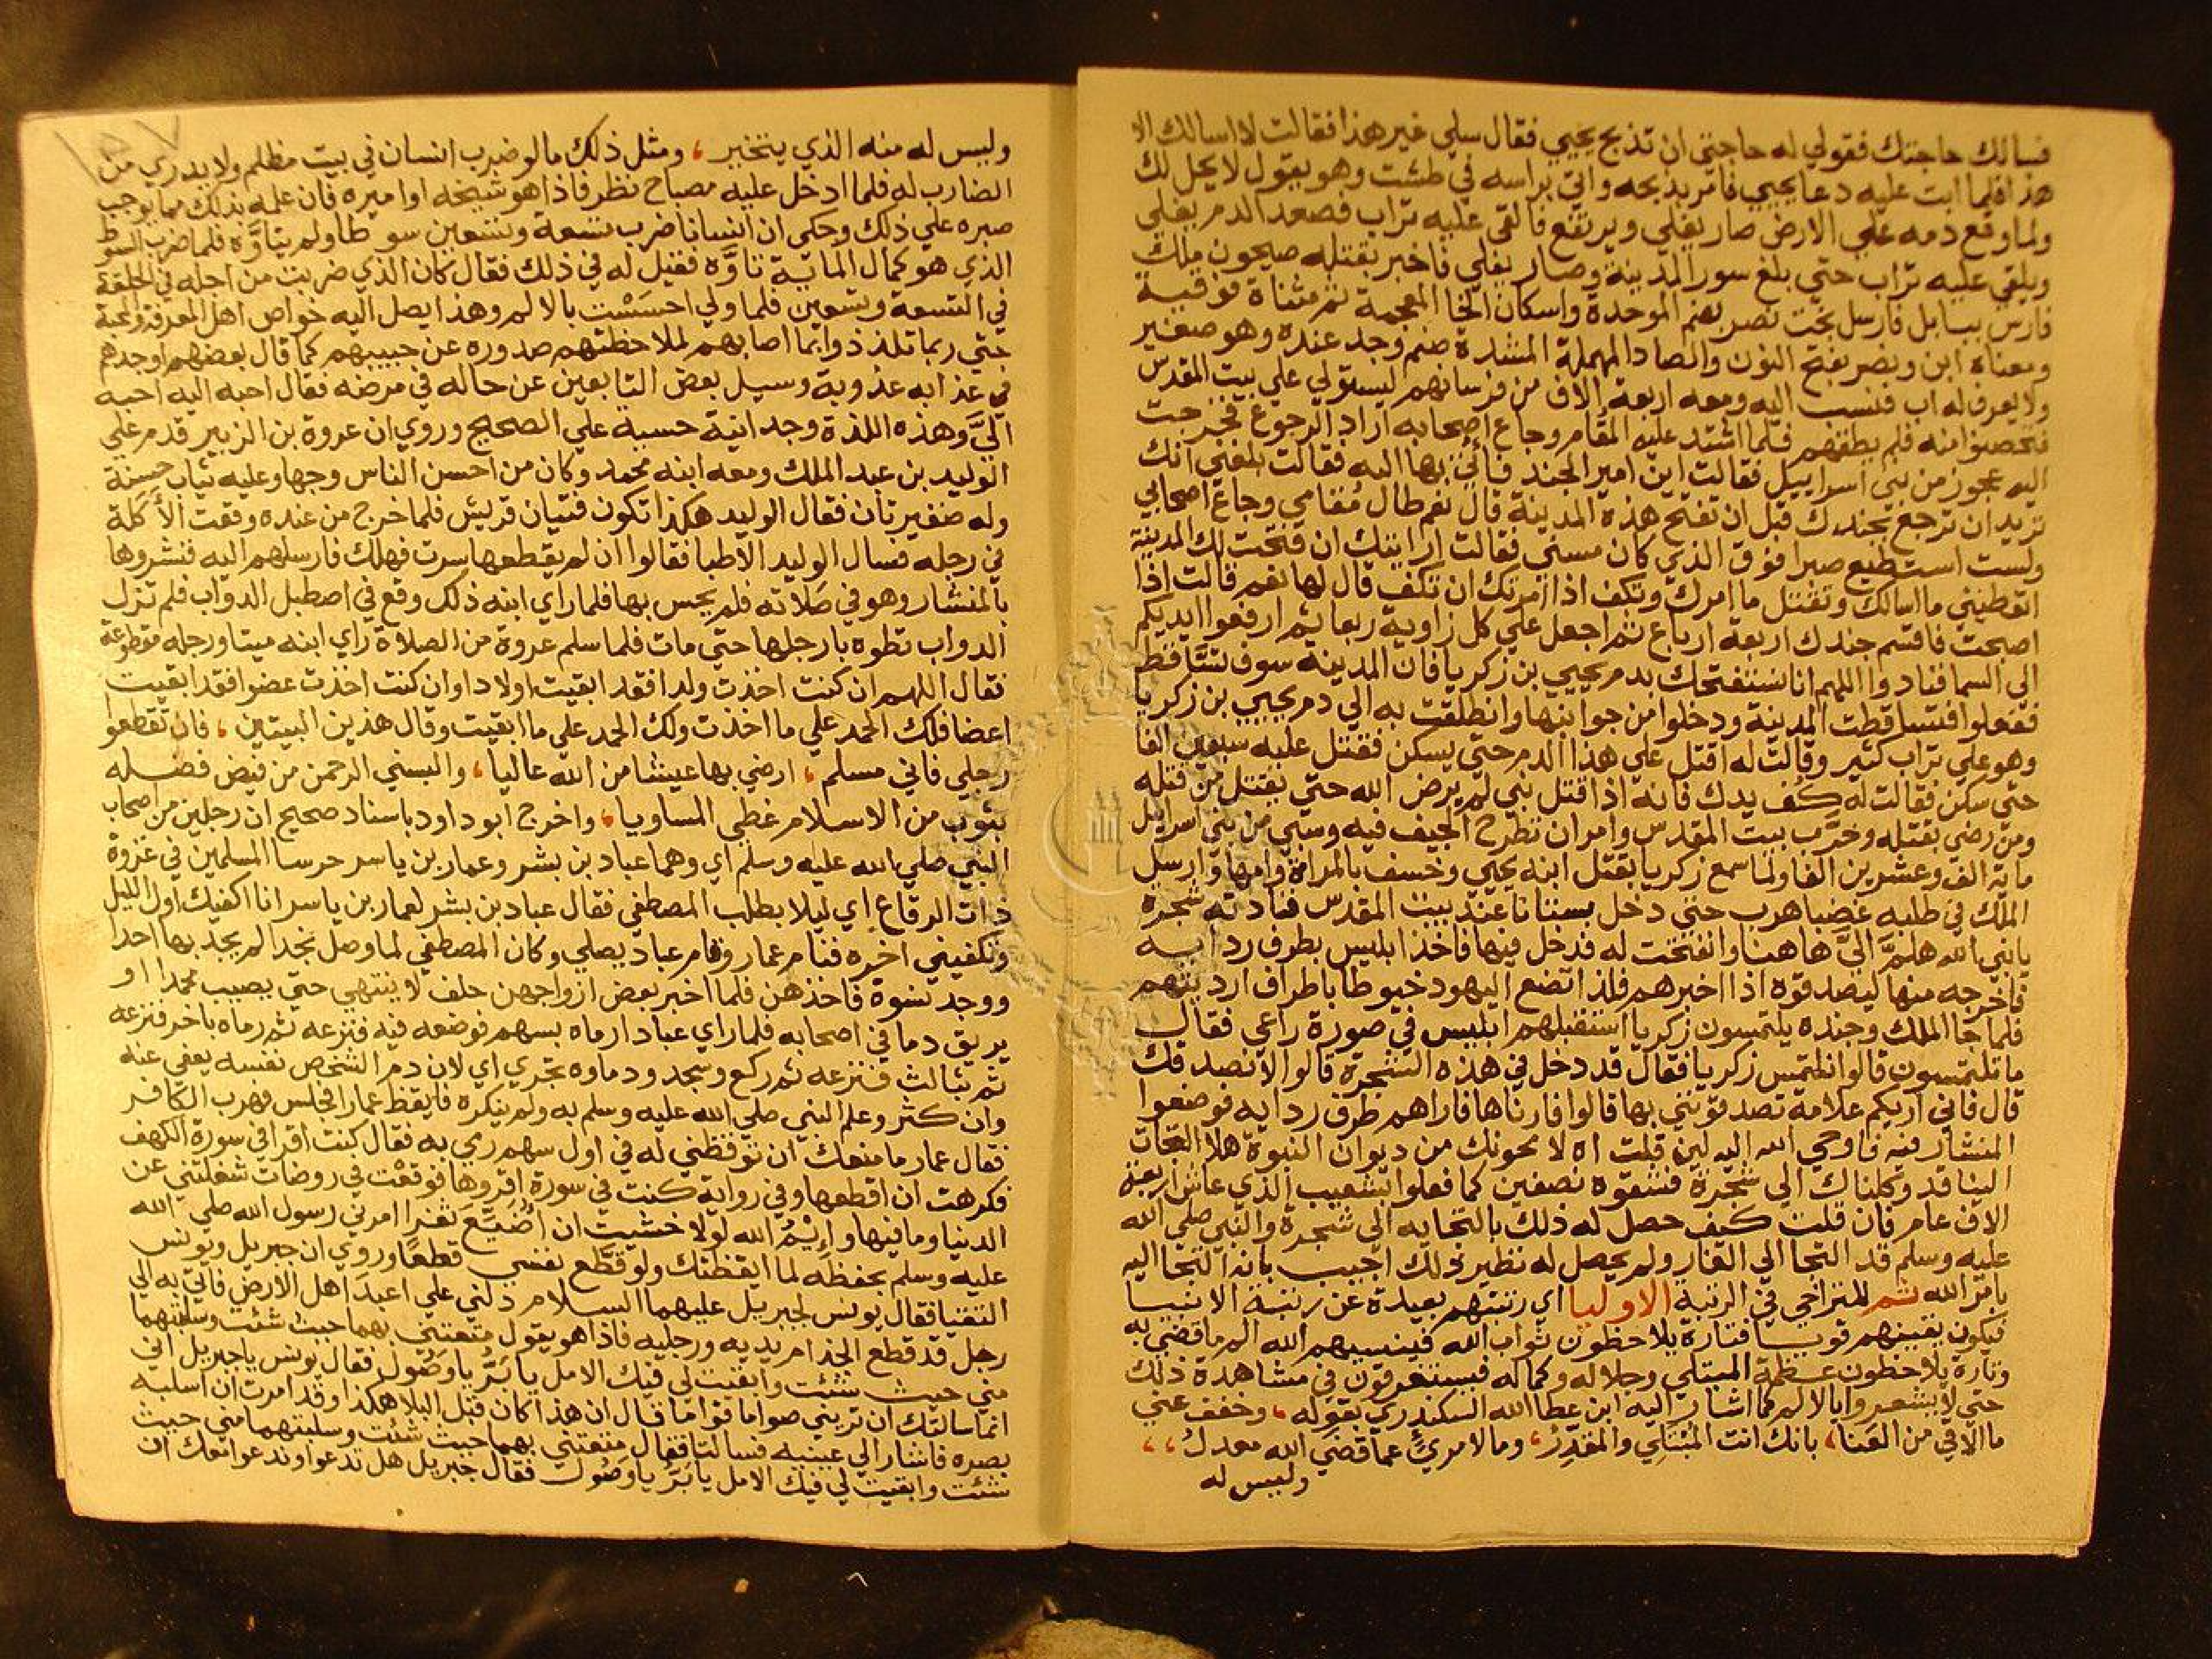 فسالك حاجتك فقولي له حاجتي ان تذبح يحيي فقال سلي غير هذا فقالت لا اسالك الا
هذا فلما ابت عليه دعا يحيي فامر بذبحه واتي براسه في طشت وهو يقول لا يحل لك
ولما وقع دمه علي الارض صار يغلي ويرتفع فالقي عليه تراب فصعد الدم يغلي
ويلقي عليه تراب حتي بلغ سور المدينة وصار يغلي فاخبر بقتله صيحون ملك
فارس ببابل فارسل بخت نصر بضم الموحدة واسكان الخا المعجمة ثم مثناة فوقية
ومعناه ابن ونصر بفتح النون والصاد المهملة المشددة صنم وجد عنده وهو صغير
ولا يعرف له اب فنسب اليه ومعه اربعة الاف من فرسانهم ليستولي علي بيت المقدس
فتحصنوا منه فلم يطقهم فلما اشتد عليه المقام وجاع اصحابه اراد الرجوع فخرجت
اليه عجوز من بني اسراييل فقالت اين امير الجند فاتي بها اليه فقالت بلغني انك
تريد ان ترجع بجندك قبل ان تفتح هذه المدينة قال نعم طال مقامي وجاع اصحابي
ولست استطيع صبرا فوق الذي كان مسني فقالت ارايتك ان فتحت لك المدينة
اتعطيني ما اسالك وتقتل ما امرك وتكف اذا امرتك ان تكف قال لها نعم قالت اذا
اصبحت فاقسم جندك اربعة ارباع ثم اجعل علي كل زاوية ربعا ثم ارفعوا ايديكم
الي السما فنادوا اللهم انا نستفتحك بدم يحيي بن زكريا فان المدينة سوف تتساقط
ففعلوا فتساقطت المدينة ودخلوا من جوانبها وانطلقت به الي دم يحيي بن زكريا
وهو علي تراب كثير وقالت له اقتل علي هذا الدم حتي يسكن فقتل عليه سبعين الفا
حتي سكن فقالت له كف يدك فانه اذا قتل نبي لم يرض الله حتي يقتل من قتله
ومن رضي بقتله وخرب بيت المقدس وامر ان تطرح الجيف فيه وسبي من بني اسراييل
ماية الف وعشرين الفا ولما سمع زكريا بقتل ابنه يحيي وخسف بالمراة وامها وارسل
الملك في طلبه غضبا هرب حتي دخل بستانا عند بيت المقدس فنادته شجرة
يا نبي الله هلم الي هاهنا وانفتحت له فدخل فيها فاخذ ابليس بطرف ردايه
فاخرجه منها ليصدقوه اذا اخبرهم فلذا تضع اليهود خيوطا باطراف ارديتهم
فلما جا الملك وجنده يلتمسون زكريا استقبلهم ابليس في صورة راعي فقال
ما تلتمسون قالوا نلتمس زكريا فقال قد دخل في هذه الشجرة قالوا لا نصدقك
قال فاني اريكم علامة تصدقونني بها قالوا فارناها فاراهم طرف ردايه فوضعوا
المنشار فيه فاوحي الله اليه لين قلت اه لامحونك من ديوان النبوة هلا التجات
الينا قد وكلناك الي شجرة فشقوه نصفين كما فعلوا بشعيب الذي عاش اربعة
الاف عام فان قلت كيف حصل له ذلك بالتجايه الي شجرة والنبي صلي الله
عليه وسلم قد التجا الي الغار ولم يحصل له نظير ذلك اجيب بانه التجا اليه
بامر الله ثم للتراخي في الرتبة الاوليا اي رتبتهم بعيدة عن رتبة الانبيا
فيكون يقينهم قويا فتارة يلاحظون ثواب الله فينسيهم الله الم ما قضي به
وتارة يلاحظون عظمة المبتلي وجلاله وكماله فيستغرقون في مشاهدة ذلك
حتي لا يشعروا بالالم كما اشار اليه ابن عطا الله السكندري بقوله، وخفف عني
ما الاقي من العنا، بانك انت المبتلي والمقدر، وما لامرئ عما قضي الله معدل،،
وليس له
وليس له منه الذي يتخير، ومثل ذلك ما لو ضرب انسان في بيت مظلم ولا يدري من
الضارب له فلما ادخل عليه مصباح نظر فاذا هو شيخه او اميره فان علمه بذلك مما يوجب
صبره علي ذلك وحكي ان انسانا ضرب تسعة وتسعين سوطا ولم يتاوه فلما ضرب السوط
الذي هو كمال الماية تاوه فقيل له في ذلك فقال كان الذي ضربت من اجله في الحلقة
في التسعة وتسعين فلما ولي احسست بالالم وهذا يصل اليه خواص اهل المعرفة والمحبة
حتي ربما تلذذوا بما اصابهم لملاحظتهم صدوره عن حبيبهم كما قال بعضهم اوجدهم
في عذابه عذوبة وسيل بعض التابعين عن حاله في مرضه فقال احبه اليه احبه
الي وهذه اللذة وجدانية حسية علي الصحيح وروي ان عروة بن الزبير قدم علي
الوليد بن عبد الملك ومعه ابنه محمد وكان من احسن الناس وجها وعليه ثياب حسنة
وله ضفيرتان فقال الوليد هكذا تكون فتيان قريش فلما خرج من عنده وقعت الأكلة
في رجله فسال الوليد الاطبا فقالوا ان لم يقطعها سرت فهلك فارسلهم اليه فنشروها
بالمنشار وهو في صلاته فلم يحس بها فلما راي ابنه ذلك وقع في اصطبل الدواب فلم تزل
الدواب تطوه بارجلها حتي مات فلما سلم عروة من الصلاة راي ابنه ميتا ورجله مقطوعة
فقال اللهم ان كنت اخذت ولدا فقد ابقيت اولادا وان كنت اخذت عضوا فقد ابقيت
اعضا فلك الحمد علي ما اخذت ولك الحمد علي ما ابقيت وقال هذين البيتين، فان تقطعوا
رجلي فاني مسلم، ارضي بها عيشا من الله عاليا، والبسني الرحمن من فيض فضله
بثوب من الاسلام غطي المساويا، واخرج ابو داود باسناد صحيح ان رجلين من اصحاب
النبي صلي الله عليه وسلم اي وهما عباد بن بشر وعمار بن ياسر حرسا المسلمين في غزوة
ذات الرقاع اي ليلا بطلب المصطفي فقال عباد بن بشر لعمار بن ياسر انا اكفيك اول الليل
وتكفيني اخره فنام عمار وقام عباد يصلي وكان المصطفي لما وصل نجدا لم يجد بها احدا
ووجد نسوة فاخذهن فلما اخبر بعض ازواجهن حلف لا ينتهي حتي يصيب محمدا او
يريق دما في اصحابه فلما راي عبادا رماه بسهم فوضعه فيه فنزعه ثم رماه باخر فنزعه
ثم بثالث فنزعه ثم ركع وسجد ودماوه تجري اي لان دم الشخص نفسه يعفي عنه
وان كثر وعلم النبي صلي الله عليه وسلم به ولم ينكره فايقظ عمارا فجلس فهرب الكافر
فقال عمار ما منعك ان توقظني له في اول سهم رمي به فقال كنت اقرا في سورة الكهف
فكرهت ان اقطعها وفي رواية كنت في سورة اقروها فوقعت في روضات شغلتني عن
الدنيا وما فيها وايم الله لولا خشيت ان اضيع ثغرا امرني رسول الله صلي الله
عليه وسلم بحفظه لما ايقظتك ولو قطع نفسي قطعا وروي ان جبريل ويونس
التقيا فقال يونس لجبريل عليهما السلام دلني علي اعبد اهل الارض فاتي به الي
رجل قد قطع الجذام يديه ورجليه فاذا هو يقول متعتني بهما حيث شئت وسلبتهما
مني حيث شئت وابقيت لي فيك الامل يا بر يا وصول فقال يونس يا جبريل اني
انما سالتك ان تريني صواما قواما قال ان هذا كان قبل البلا هكذا وقد امرت ان اسلبه
بصره فاشار الي عينيه فسالتا فقال متعتني بهما حيث شئت وسلبتهما مني حيث
شئت وابقيت لي فيك الامل يا بر يا وصول فقال جبريل هل تدعوا وندعوا معك ان